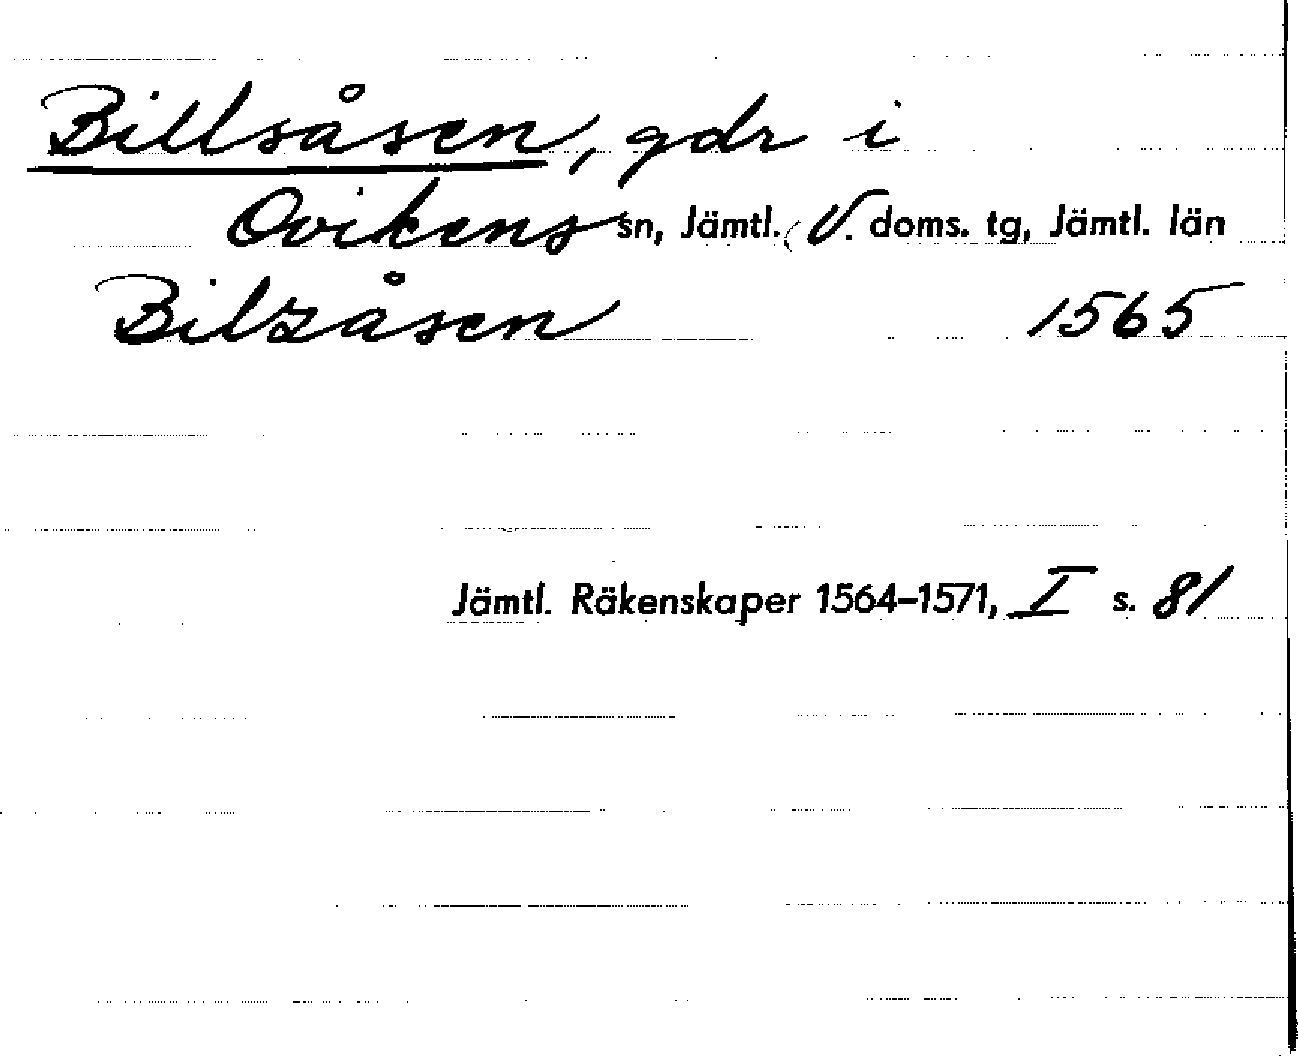 Billsåsen, gdr i
Ovikens sn, Jämtl., V. doms. tg, Jämtl. län
Bilzåsen 1565
Jämtl. Räkenskaper 1564–1571, I s. 81